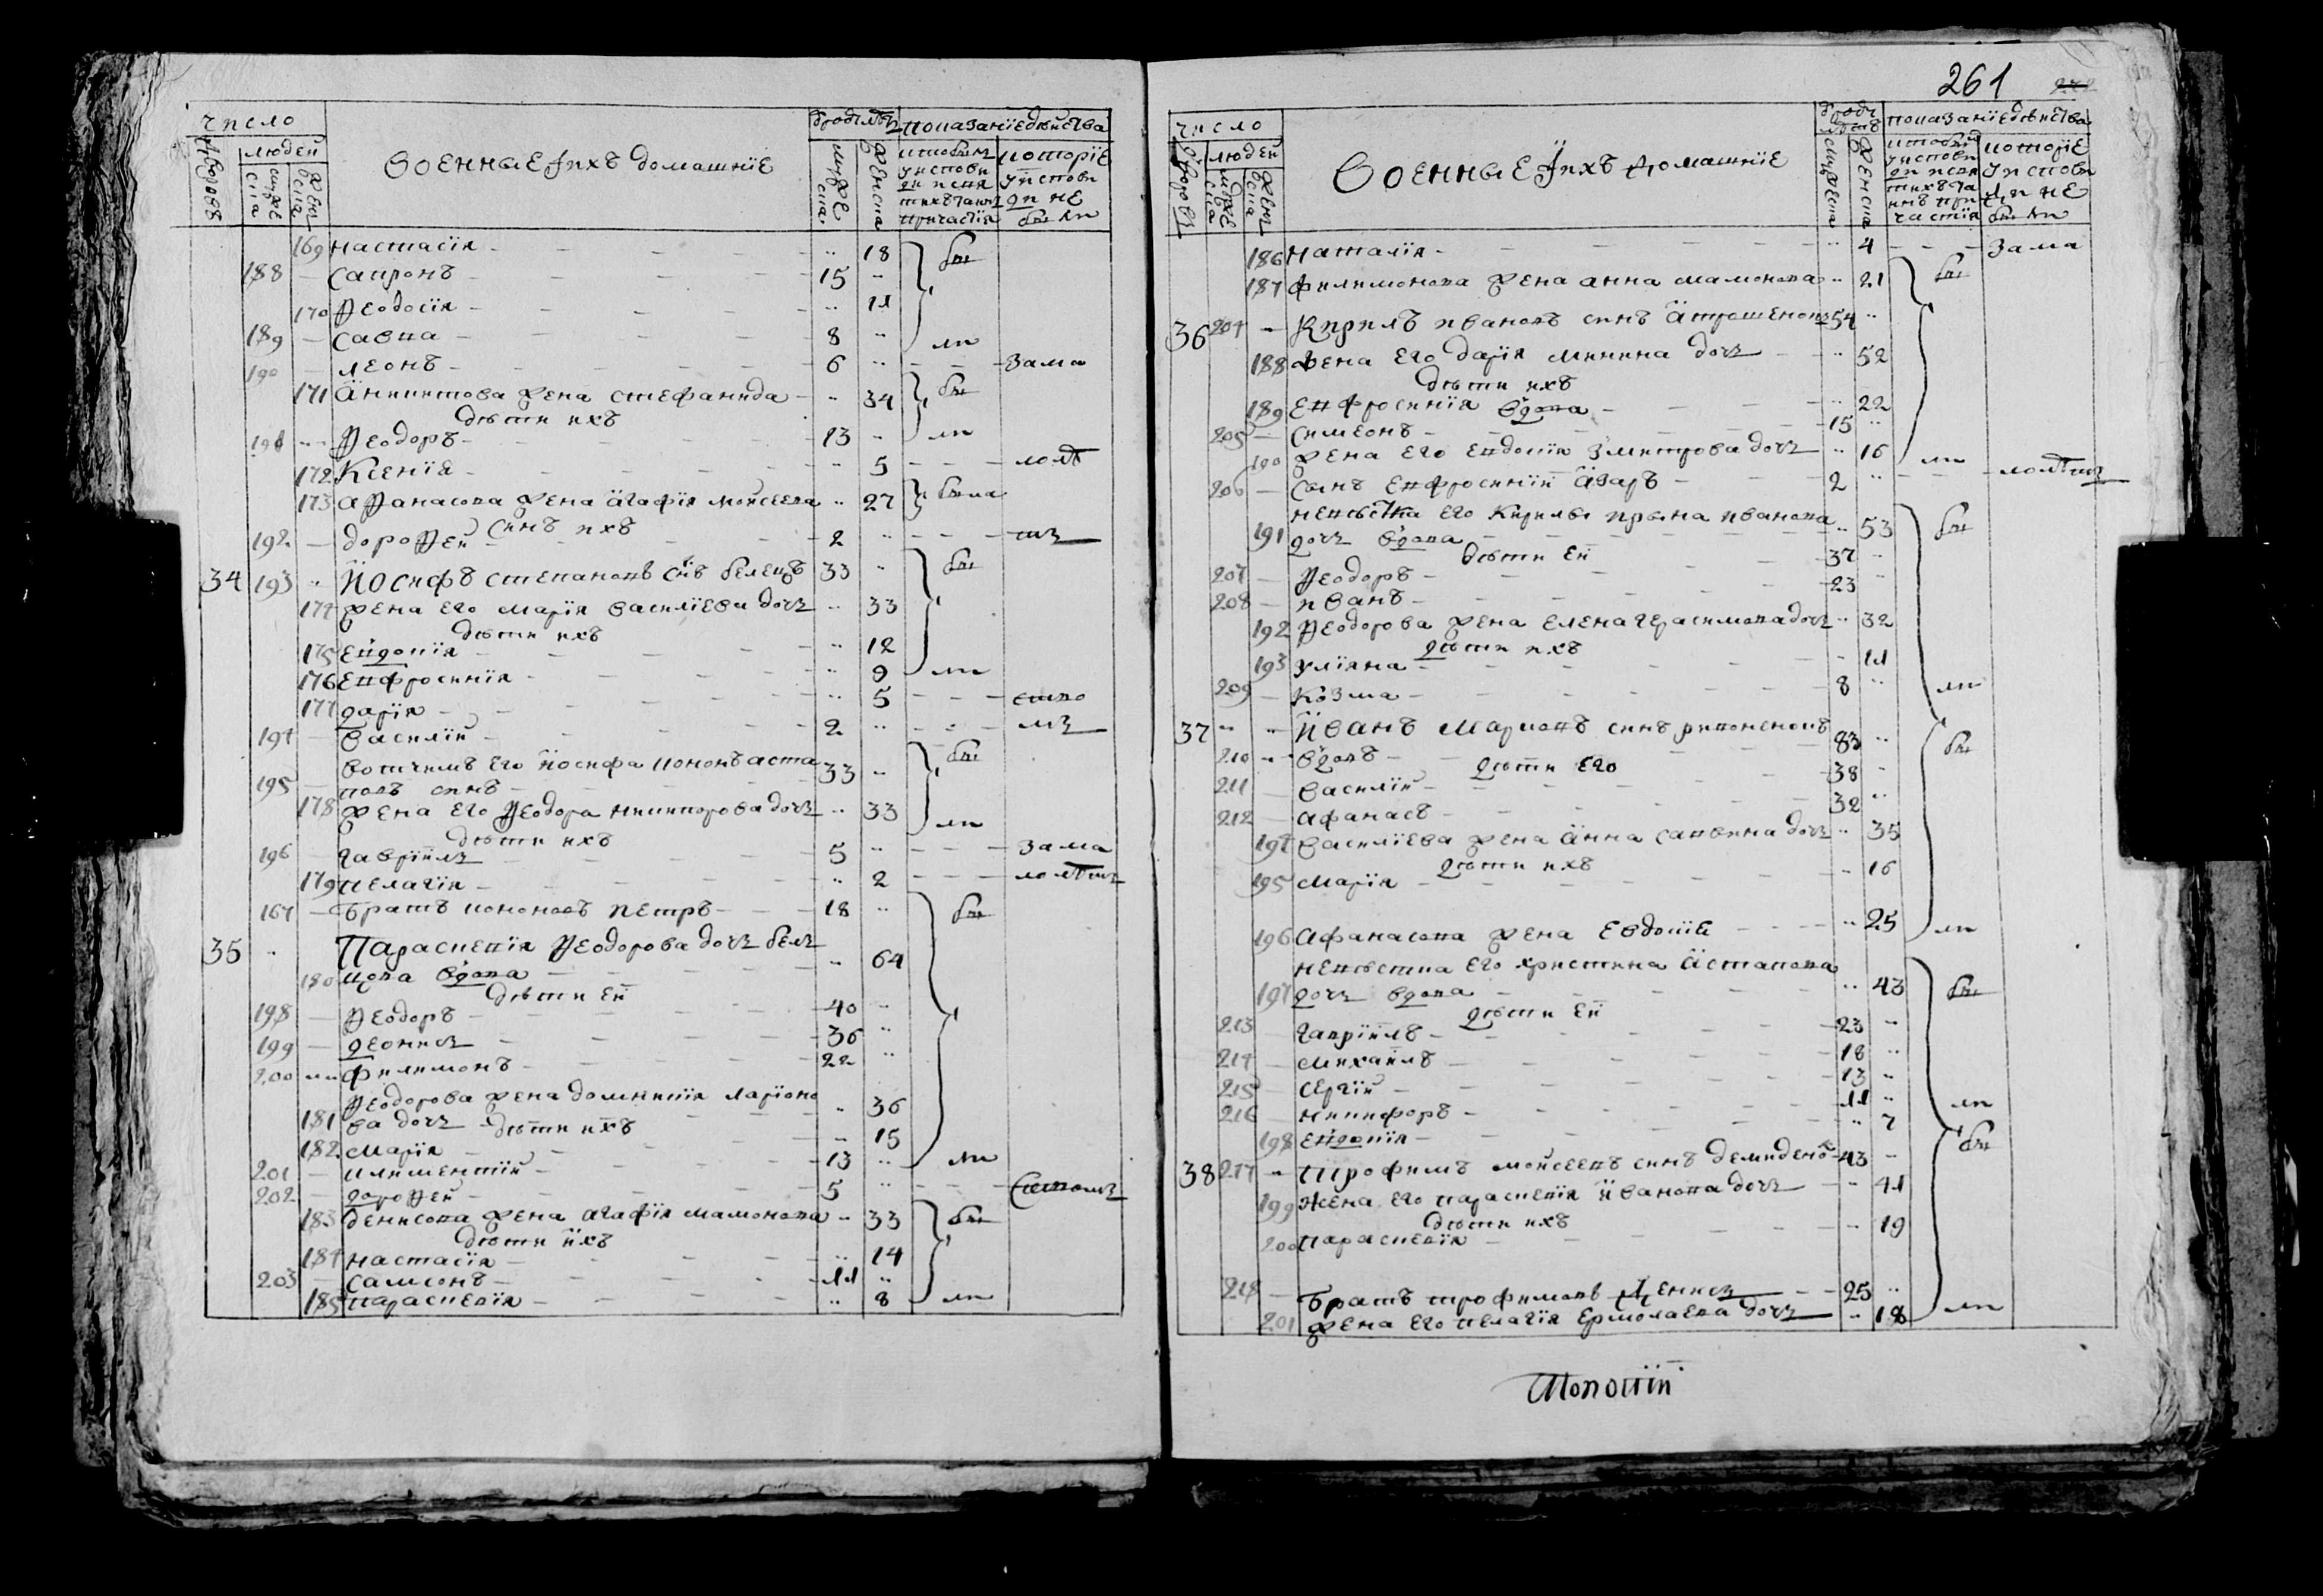 число
дворовъ
людей
мужеска
женска
военные и ихъ домашнїе
въ родѣ лѣтъ
мужеска
женска
показанїе дѣйства
кто былъ у исповѣди и святыхъ таинъ причастїя
которїе у исповѣди не были
169 настасїя - - - - .. 18 бы
188 - сапронъ - - - - 15 ..
170 Ѳеодосїя - - - - .. 11
189 - савва - - - - 8 .. ли
190 - леонъ - - - - 6 .. - - - зама
171 Аникитова жена стефанида - .. 34 бы
дѣти ихъ
191 .. Ѳеодоръ - - - - 13 .. ли
172 Ксенїя - - - - .. 5 - - - лолѣ
173 аѲанасова жена агафїя мойсеева .. 27 была
синъ ихъ
192 - дороѲей - - - 2 .. - - - тъ
34 193 .. Їосифъ степановъ снъ белецъ 33 .. бы
174 жена его марїя василїева дочъ .. 33
дѣти ихъ
175 евдокїя - - - - .. 12
176 евфросинїя - - - .. 9 ли
177 дарїя - - - - .. 5 - - -
194 - василїй - - - - 2 .. - - - лъ
вотчимъ его їосифа кононъ аста
195 - повъ синъ - - - 33 .. бы
178 жена его Ѳеодора никифорова дочъ .. 33 ли
дѣти ихъ
196 - гаврїилъ - - - 5 .. - - - зама
179 пелагїя - - - .. 2 - - - лолѣтъ
167 - братъ кононовъ петръ - - - 18 .. бы
35 .. Параскевїя Ѳеодорова дочъ белъ
180 цова вдова - - - .. 64
дѣти ей
198 - Ѳеодоръ - - - 40 ..
199 - деонисъ - - - 36 ..
200 .. филимонъ - - - 22 ..
Ѳеодорова жена домникїя ларїоно
181 ва дочъ .. 36
дѣти ихъ
182 марїя - - - .. 15
201 - климентїй - - - 13 .. ли
202 - дороѲей - - - 5 .. - - -
183 денисова жена агафїя мамонова .. 33 бы
дѣти ихъ
184 настасїя - - - .. 14
203 - самсонъ - - - 11 ..
185 параскевїя - - - .. 8 ли
261
число
дворовъ
людей
мужеска
женска
военные и ихъ домашнїе
въ родѣ лѣтъ
мужеска
женска
показанїе дѣйства
кто былъ у исповѣди и святыхъ таинъ причастїя
которїе у исповѣди не были
186 наталїя - - - - .. 4 - - - зама
187 филимонова жена анна мамонова .. 21 бы
36 204 - Кирилъ ивановъ синъ Атрошенокъ 54 ..
188 жена его дарїя минина дочъ - .. 52
дѣти ихъ
189 евфросинїя вдова - - - .. 22
205 - симеонъ - - - 15 ..
190 жена его евдокїя змитрова дочъ .. 16 ли
206 - сынъ евфросинїй Азаръ - - 2 .. - - - лолѣтъ
невѣстка его кирилы ирына иванова
191 дочъ вдова - - - .. 53 бы
дѣти ей
207 - Ѳеодоръ - - - 37 ..
208 - иванъ - - - 23 ..
192 Ѳеодорова жена елена герасимова дочъ .. 32
дѣти ихъ
193 улїяна - - - .. 11
209 - козма - - - 8 .. ли
37 .. .. Їванъ марковъ синъ рипоненокъ
210 .. вдовъ - - - 83 .. бы
дѣти его
211 - василїй - - - 38 ..
212 - афанасъ - - - 32 ..
194 василїева жена анна саввина дочъ .. 35
дѣти ихъ
195 марїя - - - .. 16
196 афанасова жена евдокїя - - - .. 25 ли
невѣстка его христина астапова
197 дочъ вдова - - - .. 43 бы
дѣти ей
213 - гаврїилъ - - - 23 ..
214 - михаилъ - - - 18 ..
215 - сергїй - - - 13 ..
216 - никифоръ - - - 11 .. ли
198 евдокїя - - - .. 7
38 217 .. трофимъ мойсеевъ синъ демиденокъ 43 .. бы
199 жена его параскевїя иванова дочъ - .. 41
дѣти ихъ
200 параскевїя - - - .. 19
218 - братъ трофимовъ Денисъ - - 25 ..
201 жена его пелагїя ермолаева дочъ .. 18 ли